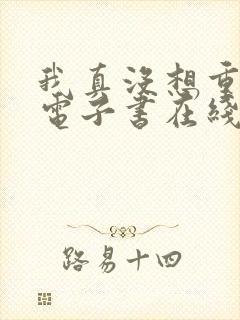 我真沒想重
電子書在綫
路易十四